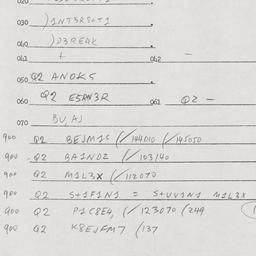 030 )INT3RSCT1
040 )D3REAK
041 + 042 -
050 Q2 ANDKS
060 Q2 E5RN3R 061 Q2 -
070 BU, AJ
900 Q2 BEJM1S (/144010 (/145050
900 Q2 BAIND2 (/103140
900 Q2 M1L3X (/112070
900 Q2 S+1F1N1 = S+UV1N1 M1L3X
900 Q2 P1C8E4, (/123070 (249
900 Q2 K8EJFM7 (/137